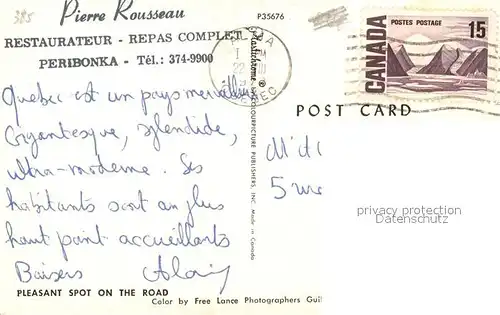 385
Pierre Rousseau
P35676
RESTAURATEUR - REPAS COMPLET
PERIBONKA - Tél.: 374-9900
Quebec est un pays merveilleux
Gigantesque, splendide,
ultra-moderne. Ses
habitants sont au plus
haut point accueillants
Baisers Alain
PLEASANT SPOT ON THE ROAD
Color by Free Lance Photographers Guil
Plastichrome ®
COLOURPICTURE PUBLISHERS, INC. Made in Canada
CANADA
POSTES POSTAGE
15
POST CARD
5
privacy protection